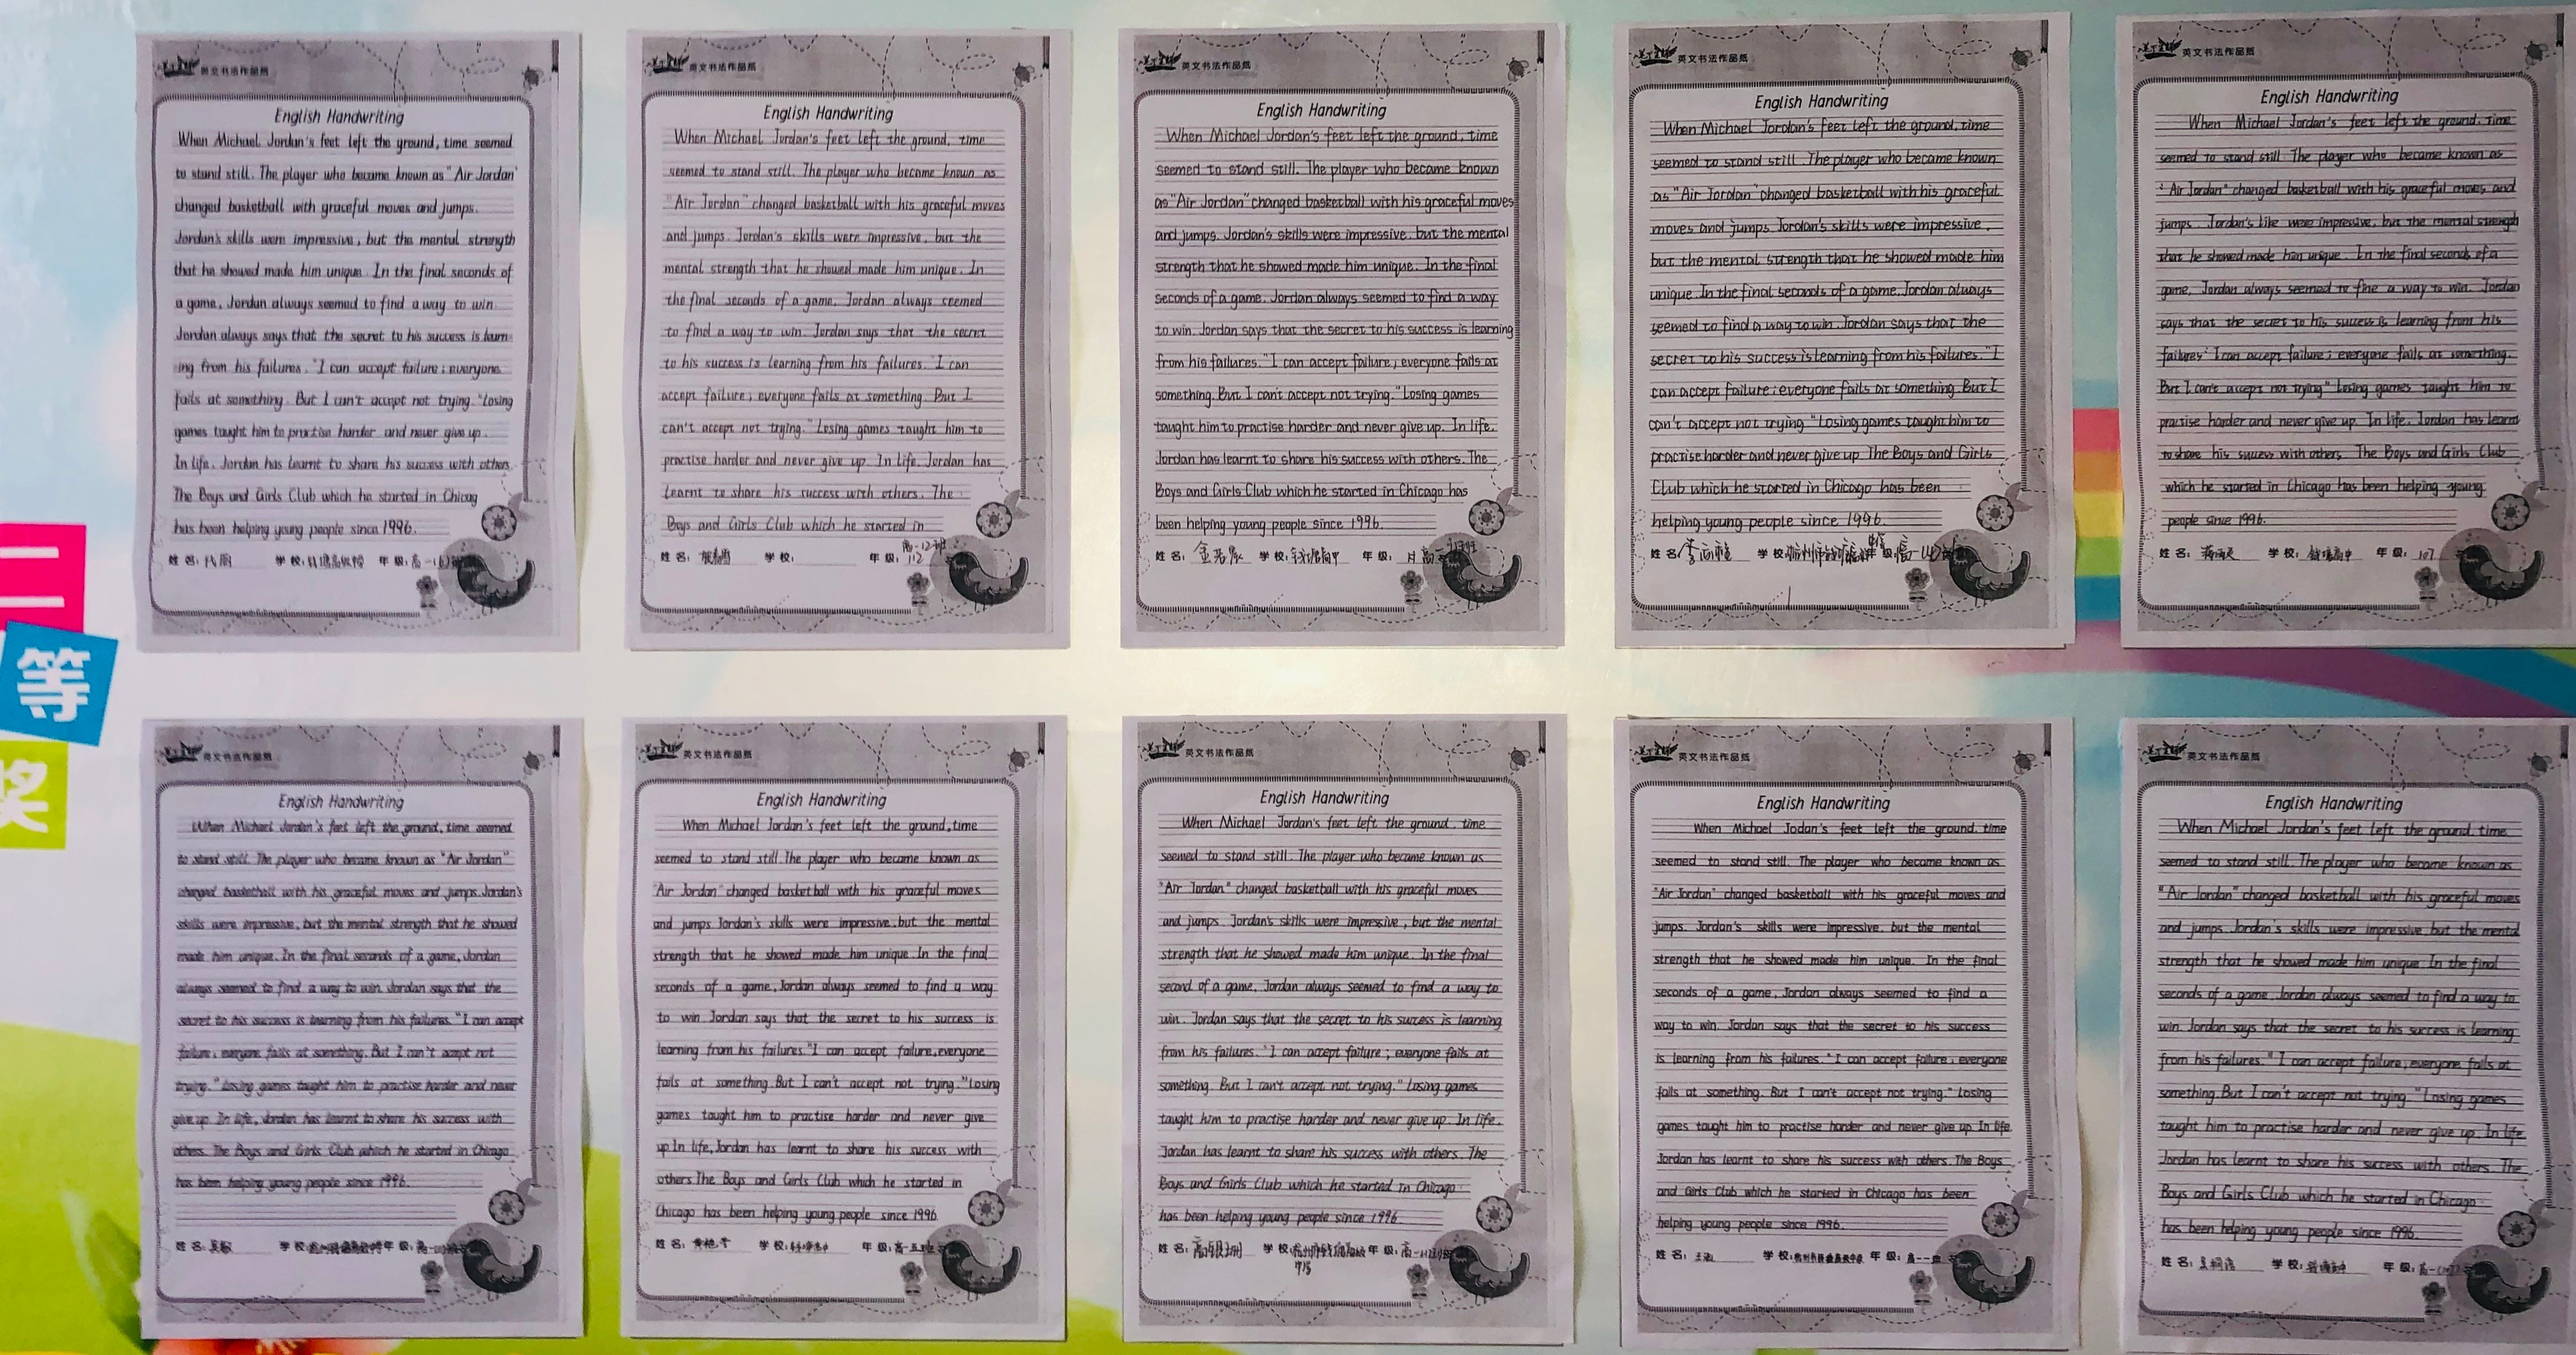 二
等
奖
英文书法作品纸
English Handwriting
When Michael Jordan's feet left the ground, time seemed
to stand still. The player who became known as "Air Jordan"
changed basketball with graceful moves and jumps.
Jordan's skills were impressive, but the mental strength
that he showed made him unique. In the final seconds of
a game, Jordan always seemed to find a way to win.
Jordan always says that the secret to his success is learn
ing from his failures. "I can accept failure; everyone
fails at something. But I can't accept not trying. "Losing
games taught him to practise harder and never give up.
In life, Jordan has learnt to share his success with others.
The Boys and Girls Club which he started in Chicag
has been helping young people since 1996.
姓名: 学校: 年级:
英文书法作品纸
English Handwriting
When Michael Jordan's feet left the ground, time
seemed to stand still. The player who became known as
"Air Jordan" changed basketball with his graceful moves
and jumps. Jordan's skills were impressive, but the
mental strength that he showed made him unique. In
the final seconds of a game, Jordan always seemed
to find a way to win. Jordan says that the secret
to his success is learning from his failures. "I can
accept failure; everyone fails at something. But I
can't accept not trying." Losing games taught him to
practise harder and never give up. In life, Jordan has
learnt to share his success with others. The
Boys and Girls Club which he started in
姓名: 学校: 年级: 高一12班
112
英文书法作品纸
English Handwriting
When Michael Jordan's feet left the ground, time
seemed to stand still. The player who became known
as "Air Jordan" changed basketball with his graceful moves
and jumps. Jordan's skills were impressive, but the mental
strength that he showed made him unique. In the final
seconds of a game, Jordan always seemed to find a way
to win. Jordan says that the secret to his success is learning
from his failures. "I can accept failure; everyone fails at
something. But I can't accept not trying." Losing games
taught him to practise harder and never give up. In life,
Jordan has learnt to share his success with others. The
Boys and Girls Club which he started in Chicago has
been helping young people since 1996.
姓名: 学校: 钱塘高中 年级:
英文书法作品纸
English Handwriting
When Michael Jordan's feet left the ground, time
seemed to stand still. The player who became known
as "Air Jordan" changed basketball with his graceful
moves and jumps. Jordan's skills were impressive,
but the mental strength that he showed made him
unique. In the final seconds of a game, Jordan always
seemed to find a way to win. Jordan says that the
secret to his success is learning from his failures. "I
can accept failure; everyone fails at something. But I
can't accept not trying." Losing games taught him to
practise harder and never give up. The Boys and Girls
Club which he started in Chicago has been
helping young people since 1996.
姓名: 学校: 年级:
英文书法作品纸
English Handwriting
When Michael Jordan's feet left the ground, time
seemed to stand still. The player who became known as
"Air Jordan" changed basketball with his graceful moves and
jumps. Jordan's like were impressive, but the mental strength
that he showed made him unique. In the final seconds of a
game, Jordan always seemed to fine a way to win. Jordan
says that the secret to his success is learning from his
failures "I can accept failure; everyone fails at something.
But I can't accept not trying" Losing games taught him to
practise harder and never give up. In life, Jordan has learnt
to share his success with others. The Boys and Girls Club
which he started in Chicago has been helping young
people since 1996.
姓名: 学校: 钱塘高中 年级: 107
英文书法作品纸
English Handwriting
When Michael Jordan's feet left the ground, time seemed
to stand still. The player who became known as "Air Jordan"
changed basketball with his graceful moves and jumps. Jordan's
skills were impressive, but the mental strength that he showed
made him unique. In the final seconds of a game, Jordan
always seemed to find a way to win. Jordan says that the
secret to his success is learning from his failures. "I can accept
failure; everyone fails at something. But I can't accept not
trying." Losing games taught him to practise harder and never
give up. In life, Jordan has learnt to share his success with
others. The Boys and Girls Club which he started in Chicago
has been helping young people since 1996.
姓名: 学校: 年级:
英文书法作品纸
English Handwriting
When Michael Jordan's feet left the ground, time
seemed to stand still. The player who became known as
"Air Jordan" changed basketball with his graceful moves
and jumps Jordan's skills were impressive, but the mental
strength that he showed made him unique. In the final
seconds of a game, Jordan always seemed to find a way
to win. Jordan says that the secret to his success is
learning from his failures. "I can accept failure, everyone
fails at something. But I can't accept not trying." Losing
games taught him to practise harder and never give
up In life, Jordan has learnt to share his success with
others. The Boys and Girls Club which he started in
Chicago has been helping young people since 1996.
姓名: 学校: 年级: 高一五班
英文书法作品纸
English Handwriting
When Michael Jordan's feet left the ground, time
seemed to stand still. The player who became known as
"Air Jordan" changed basketball with his graceful moves
and jumps. Jordan's skills were impressive, but the mental
strength that he showed made him unique. In the final
second of a game, Jordan always seemed to find a way to
win. Jordan says that the secret to his success is learning
from his failures. "I can accept failure; everyone fails at
something. But I can't accept not trying." Losing games
taught him to practise harder and never give up. In life,
Jordan has learnt to share his success with others. The
Boys and Girls Club which he started in Chicago
has been helping young people since 1996
姓名: 学校: 年级:
英文书法作品纸
English Handwriting
When Michael Jodan's feet left the ground, time
seemed to stand still. The player who became known as
"Air Jordan" changed basketball with his graceful moves and
jumps. Jordan's skills were impressive, but the mental
strength that he showed made him unique. In the final
seconds of a game, Jordan always seemed to find a
way to win. Jordan says that the secret to his success
is learning from his failures. "I can accept failure; everyone
fails at something. But I can't accept not trying." Losing
games taught him to practise harder and never give up In life,
Jordan has learnt to share his success with others. The Boys
and Girls Club which he started in Chicago has been
helping young people since 1996.
姓名: 学校: 年级:
英文书法作品纸
English Handwriting
When Michael Jordan's feet left the ground, time
seemed to stand still. The player who became known as
"Air Jordan" changed basketball with his graceful moves
and jumps. Jordan's skills were impressive, but the mental
strength that he showed made him unique. In the final
seconds of a game, Jordan always seemed to find a way to
win. Jordan says that the secret to his success is learning
from his failures. "I can accept failure, everyone fails at
something. But I can't accept not trying." Losing games
taught him to practise harder and never give up. In life,
Jordan has learnt to share his success with others. The
Boys and Girls Club which he started in Chicago
has been helping young people since 1996.
姓名: 学校: 年级: